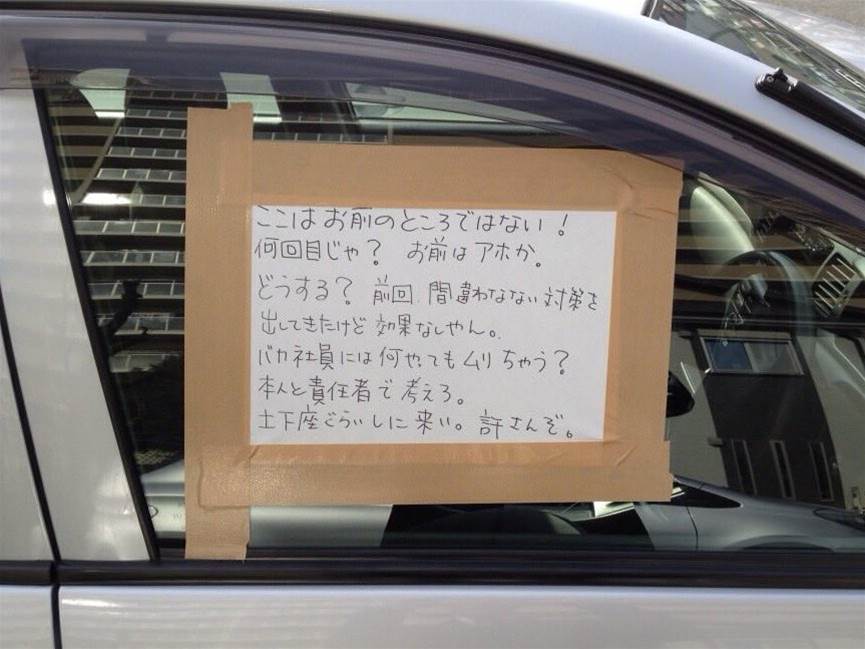 ここはお前のところではない！
何回目じゃ？ お前はアホか。
どうする？ 前回、間違わなない対策を
出してきたけど効果なしやん。
バカ社員には何やってもムリちゃう？
本人と責任者で考えろ。
土下座ぐらいしに来い。許さんぞ。